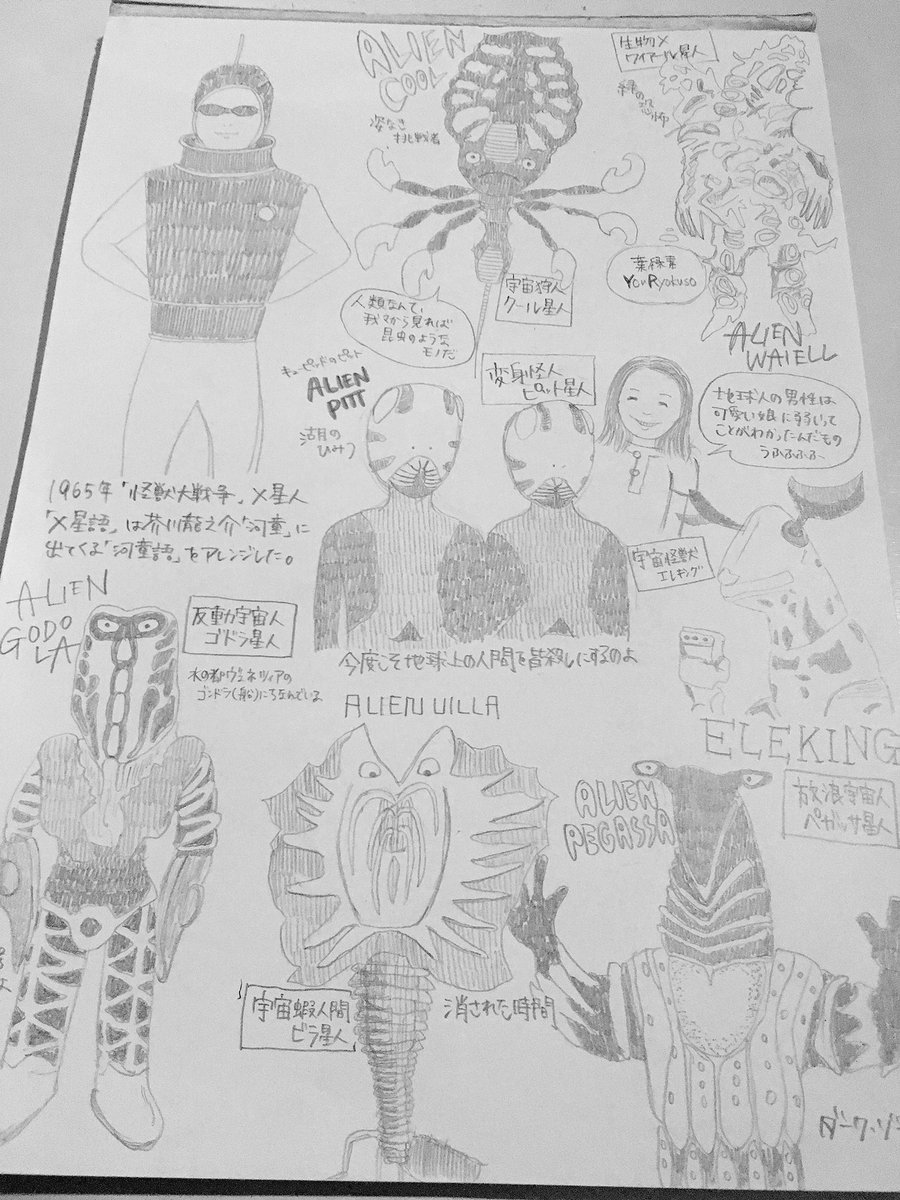 ALIEN
COOL
姿なき
挑戦者
宇宙狩人
クール星人
人類なんて、
我々から見れば
昆虫のような
モノだ
生物X
ワイアール星人
緑の
恐怖
葉緑素
YouRyokuso
ALIEN
WAIELL
キューピッドのピット
ALIEN
PITT
湖の
ひみつ
変身怪人
ピット星人
地球人の男性は
可愛い娘に弱いって
ことがわかったんだもの
うふふふふ、
1965年「怪獣大戦争」X星人
「X星語」は芥川龍之介「河童」に
出てくる「河童語」をアレンジした。
宇宙怪獣
エレキング
今度こそ地球上の人間を皆殺しにするのよ
ELEKING
ALIEN
GODO
LA
反重力宇宙人
ゴドラ星人
水の都ヴェネツィアの
ゴンドラ(船)にちなんでいる
ALIEN VILLA
宇宙蝦人間
ビラ星人
消された時間
ALIEN
PEGASSA
放浪宇宙人
ペガッサ星人
ダーク・ゾ